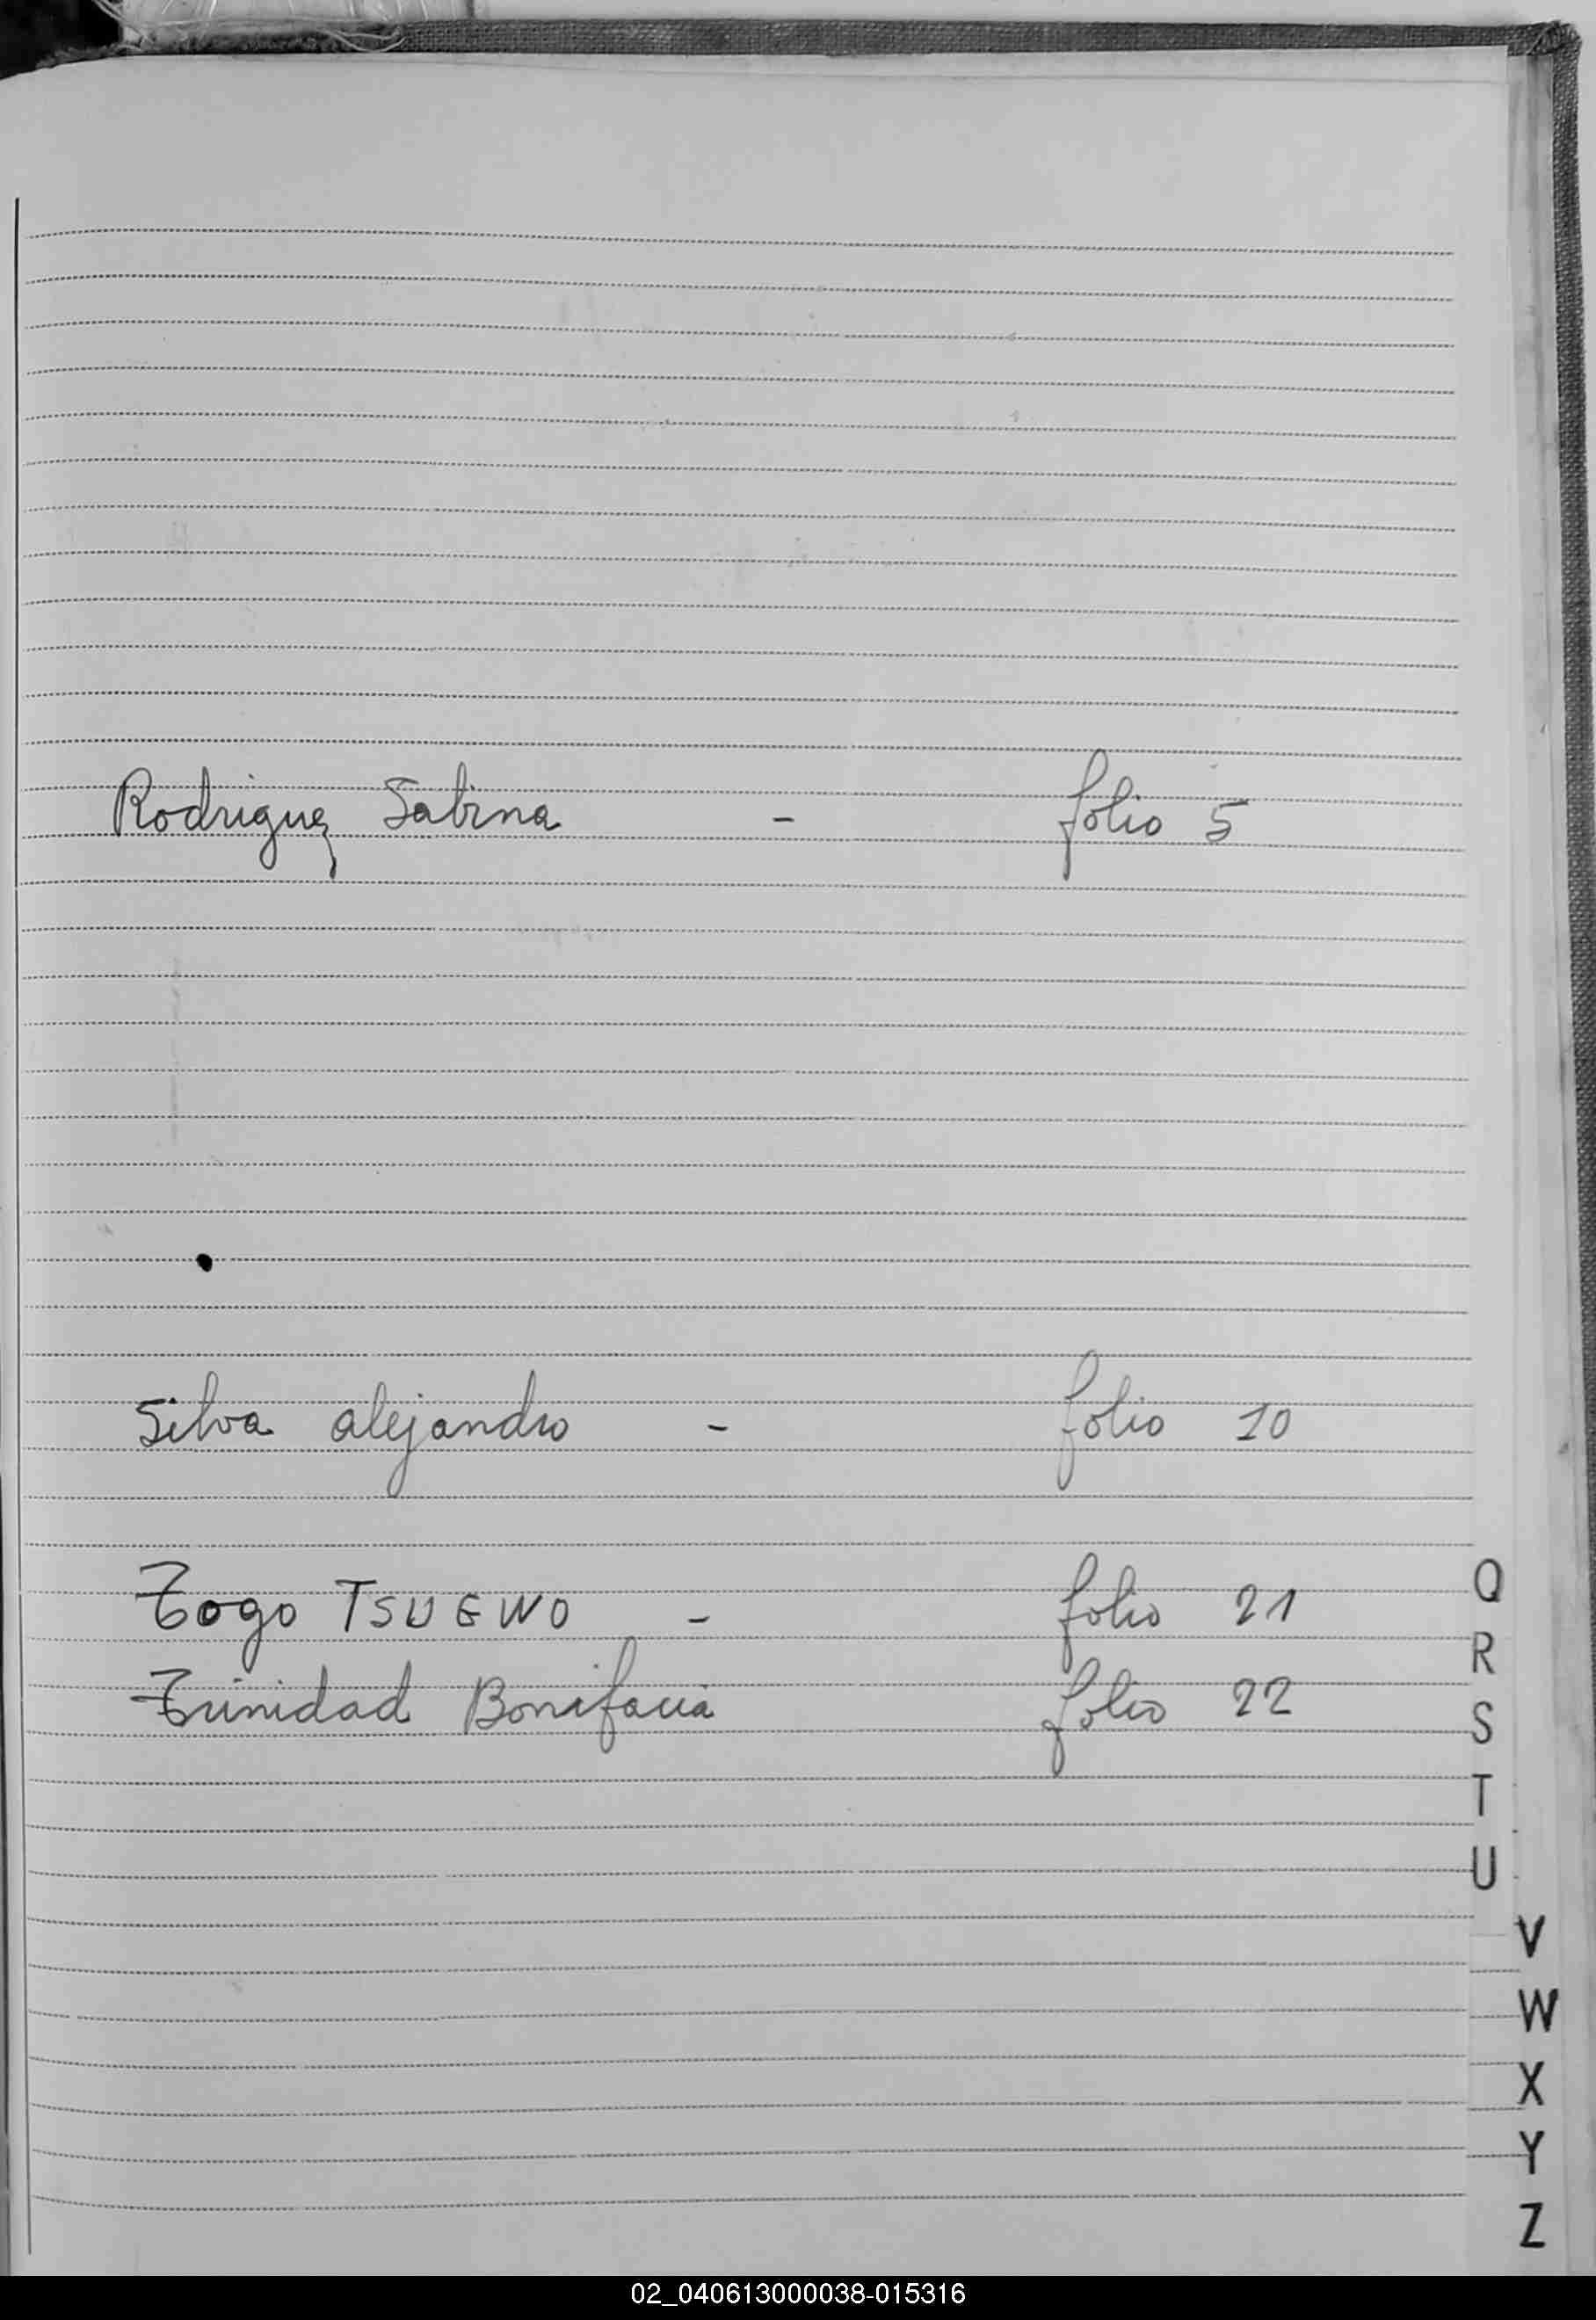 Rodriguez Sabina - folio 5
Silva alejandro - folio 10
Togo TSUEWO - folio 21
Trinidad Bonifacia folio 22
Q
R
S
T
U
V
W
X
Y
Z
02_040613000038-015316